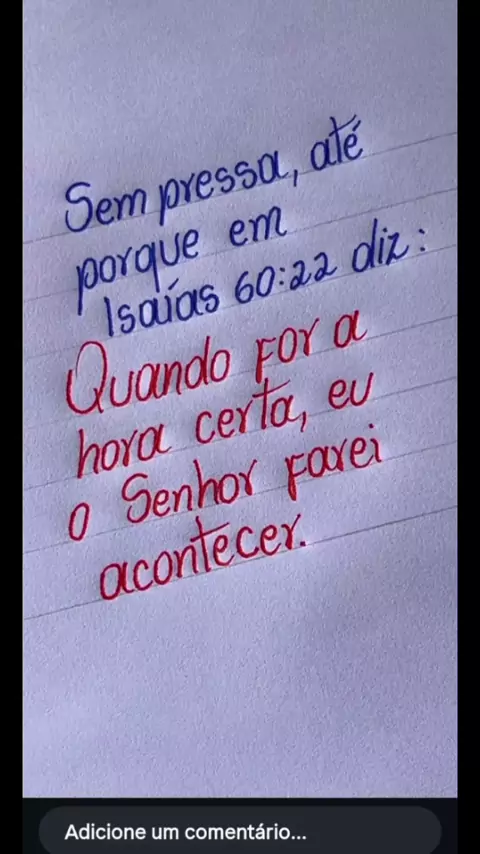 Sem pressa, até
porque em
Isaías 60:22 diz:
Quando for a
hora certa, eu
o Senhor farei
acontecer.
Adicione um comentário...